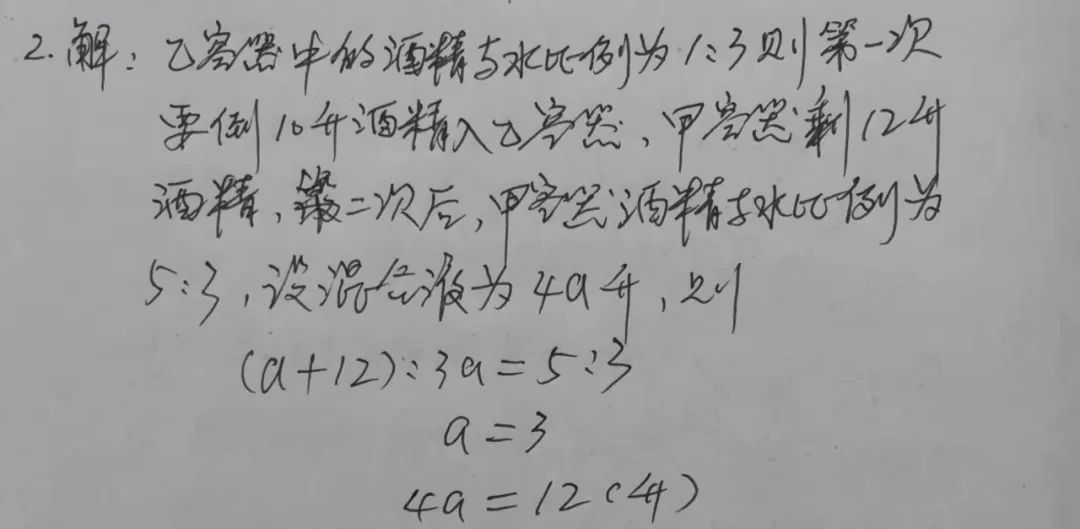 2.解：乙容器中的酒精与水比例为1:3则第一次
要倒10升酒精入乙容器，甲容器剩12升
酒精，第二次后，甲容器酒精与水比例为
5:3，设混合液为4a升，则
(a+12):3a=5:3
a=3
4a=12(升)